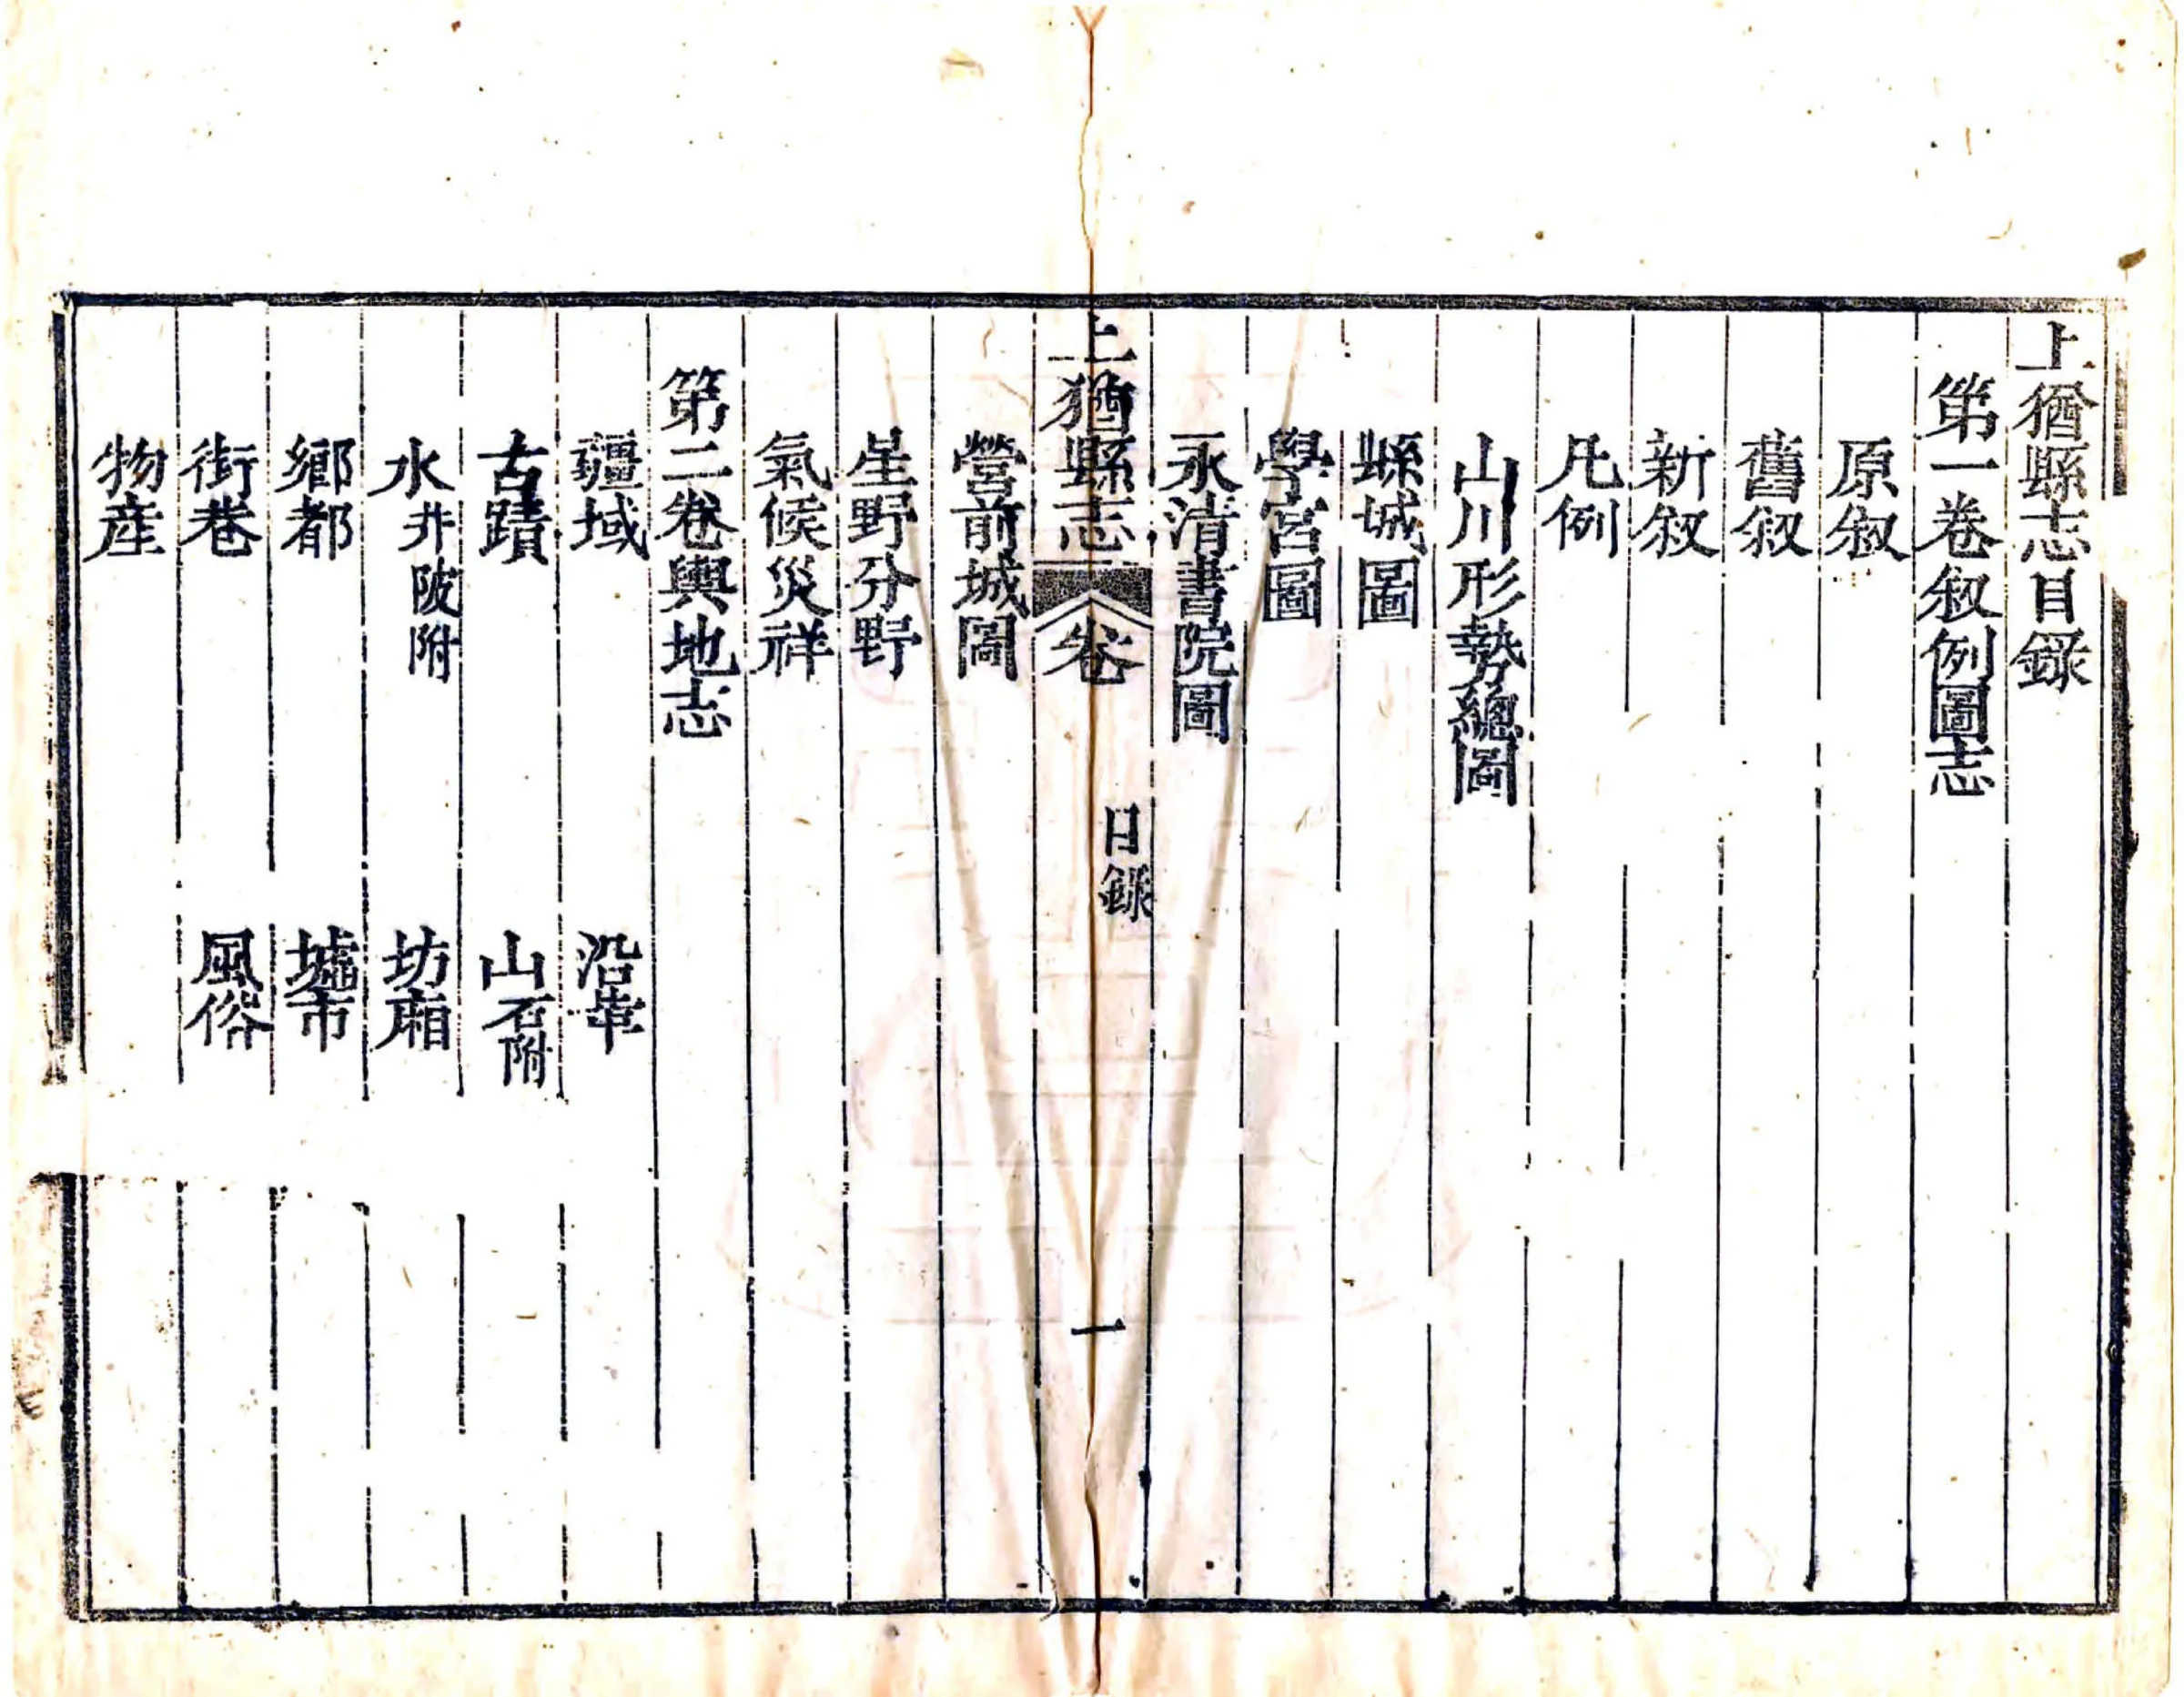 上猶縣志目録
第一卷叙例圖志
原叙
舊叙
新叙
凡例
山川形勢總圖
縣城圖
學宮圖
永清書院圖
上猶縣志 卷 目録 一
營前城圖
星野分野
氣候災祥
第二卷輿地志
疆域 沿革
古蹟 山石附
水井陂附 坊廂
鄉都 墟市
街巷 風俗
物産